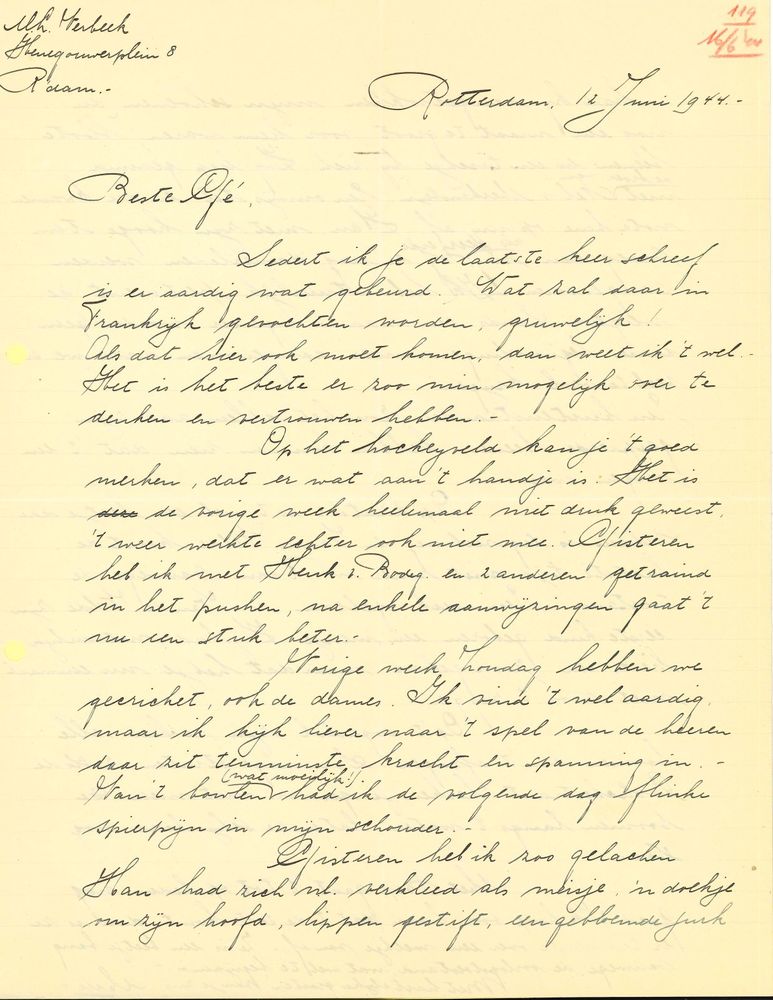 M.L. Verbeek
Henegouwerplein 8
R'dam.-
119
16/6 '44
Rotterdam, 12 Juni 1944.-
Beste Gé,
Sedert ik je de laatste keer schreef
is er aardig wat gebeurd. Wat zal daar in
Frankrijk gevochten worden, gruwelijk!
Als dat hier ook moet komen, dan weet ik 't wel.-
Het is het beste er zoo min mogelijk over te
denken en vertrouwen hebben.-
Op het hockeyveld kan je 't goed
merken, dat er wat aan 't handje is: Het is
deze de vorige week heelemaal niet druk geweest,
't weer werkte echter ook niet mee. Gisteren
heb ik met Henk v. Bodg. en 2 anderen getraind
in het pushen, na enkele aanwijzingen gaat 't
nu een stuk beter.-
Vorige week Zondag hebben we
gecricket, ook de dames. Ik vind 't wel aardig,
maar ik kijk liever naar 't spel van de heeren
daar zit tenminste kracht en spanning in.-
(wat moeilijk!)
Van 't bowlen had ik de volgende dag flinke
spierpijn in mijn schouder.-
Gisteren heb ik zoo gelachen
Han had zich nl. verkleed als meisje, 'n doekje
om zijn hoofd, lippen gestift, een gebloemde jurk